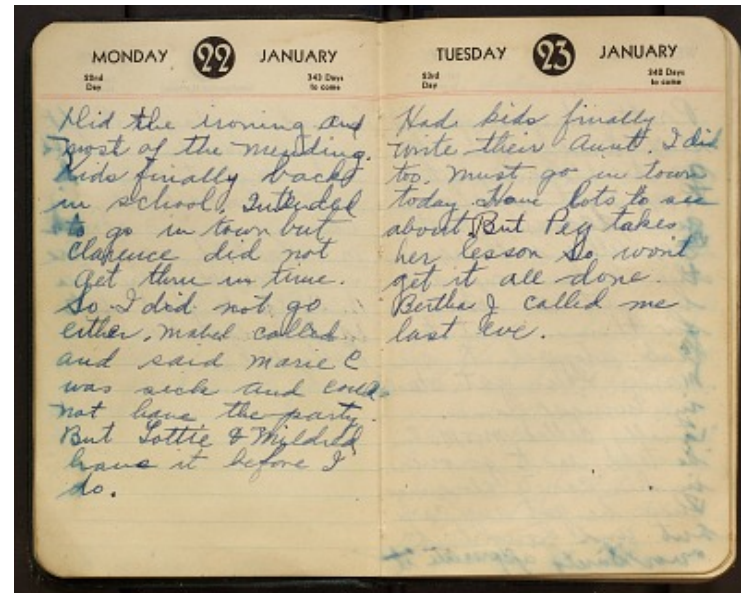 MONDAY 22 JANUARY
22nd Day
343 Days to come
Did the ironing and
most of the mending.
Kids finally back
in school. Intended
to go in town but
Clarence did not
get thru in time.
So I did not go
either. Mabel called
and said Marie C
was sick and could
not have the party.
But Lottie & Mildred
have it before I
do.
TUESDAY 23 JANUARY
23rd Day
342 Days to come
Had kids finally
write their Aunt. I did
too. Must go in town
today. Have lots to see
about. But Peg takes
her lesson so won't
get it all done.
Bertha J called me
last eve.